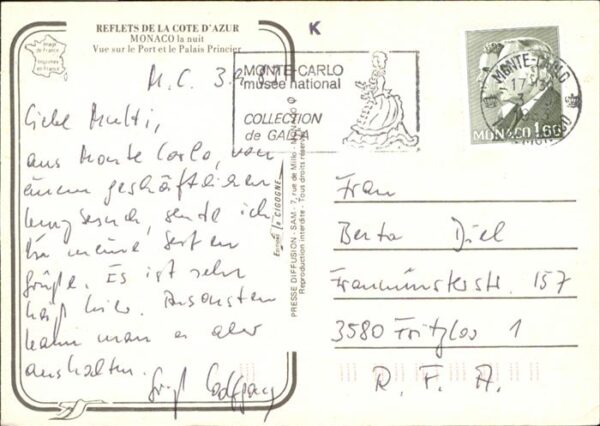 REFLETS DE LA COTE D'AZUR
MONACO la nuit
Vue sur le Port et le Palais Princier
Image de France
Imprimé en France
K
M. C. 3.9.87
Liebe Mutti,
aus Monte Carlo, von
einem geschäftlichen
sende ich
Dir meine besten
Grüße. Es ist sehr
heiß hier. Ansonsten
kann man es aber
aushalten.
Gruß Wolfgang
MONTE-CARLO
musée national
COLLECTION
de GALEA
MONTE-CARLO
MONACO
MONACO 1,60
Editions la CIGOGNE
PRESSE DIFFUSION - SAM - 7, rue de Millo - MONACO
Reproduction interdite - Tous droits réservés
Frau
Berta Diel
Fraumünsterstr. 157
3580 Fritzlar 1
R. F. A.